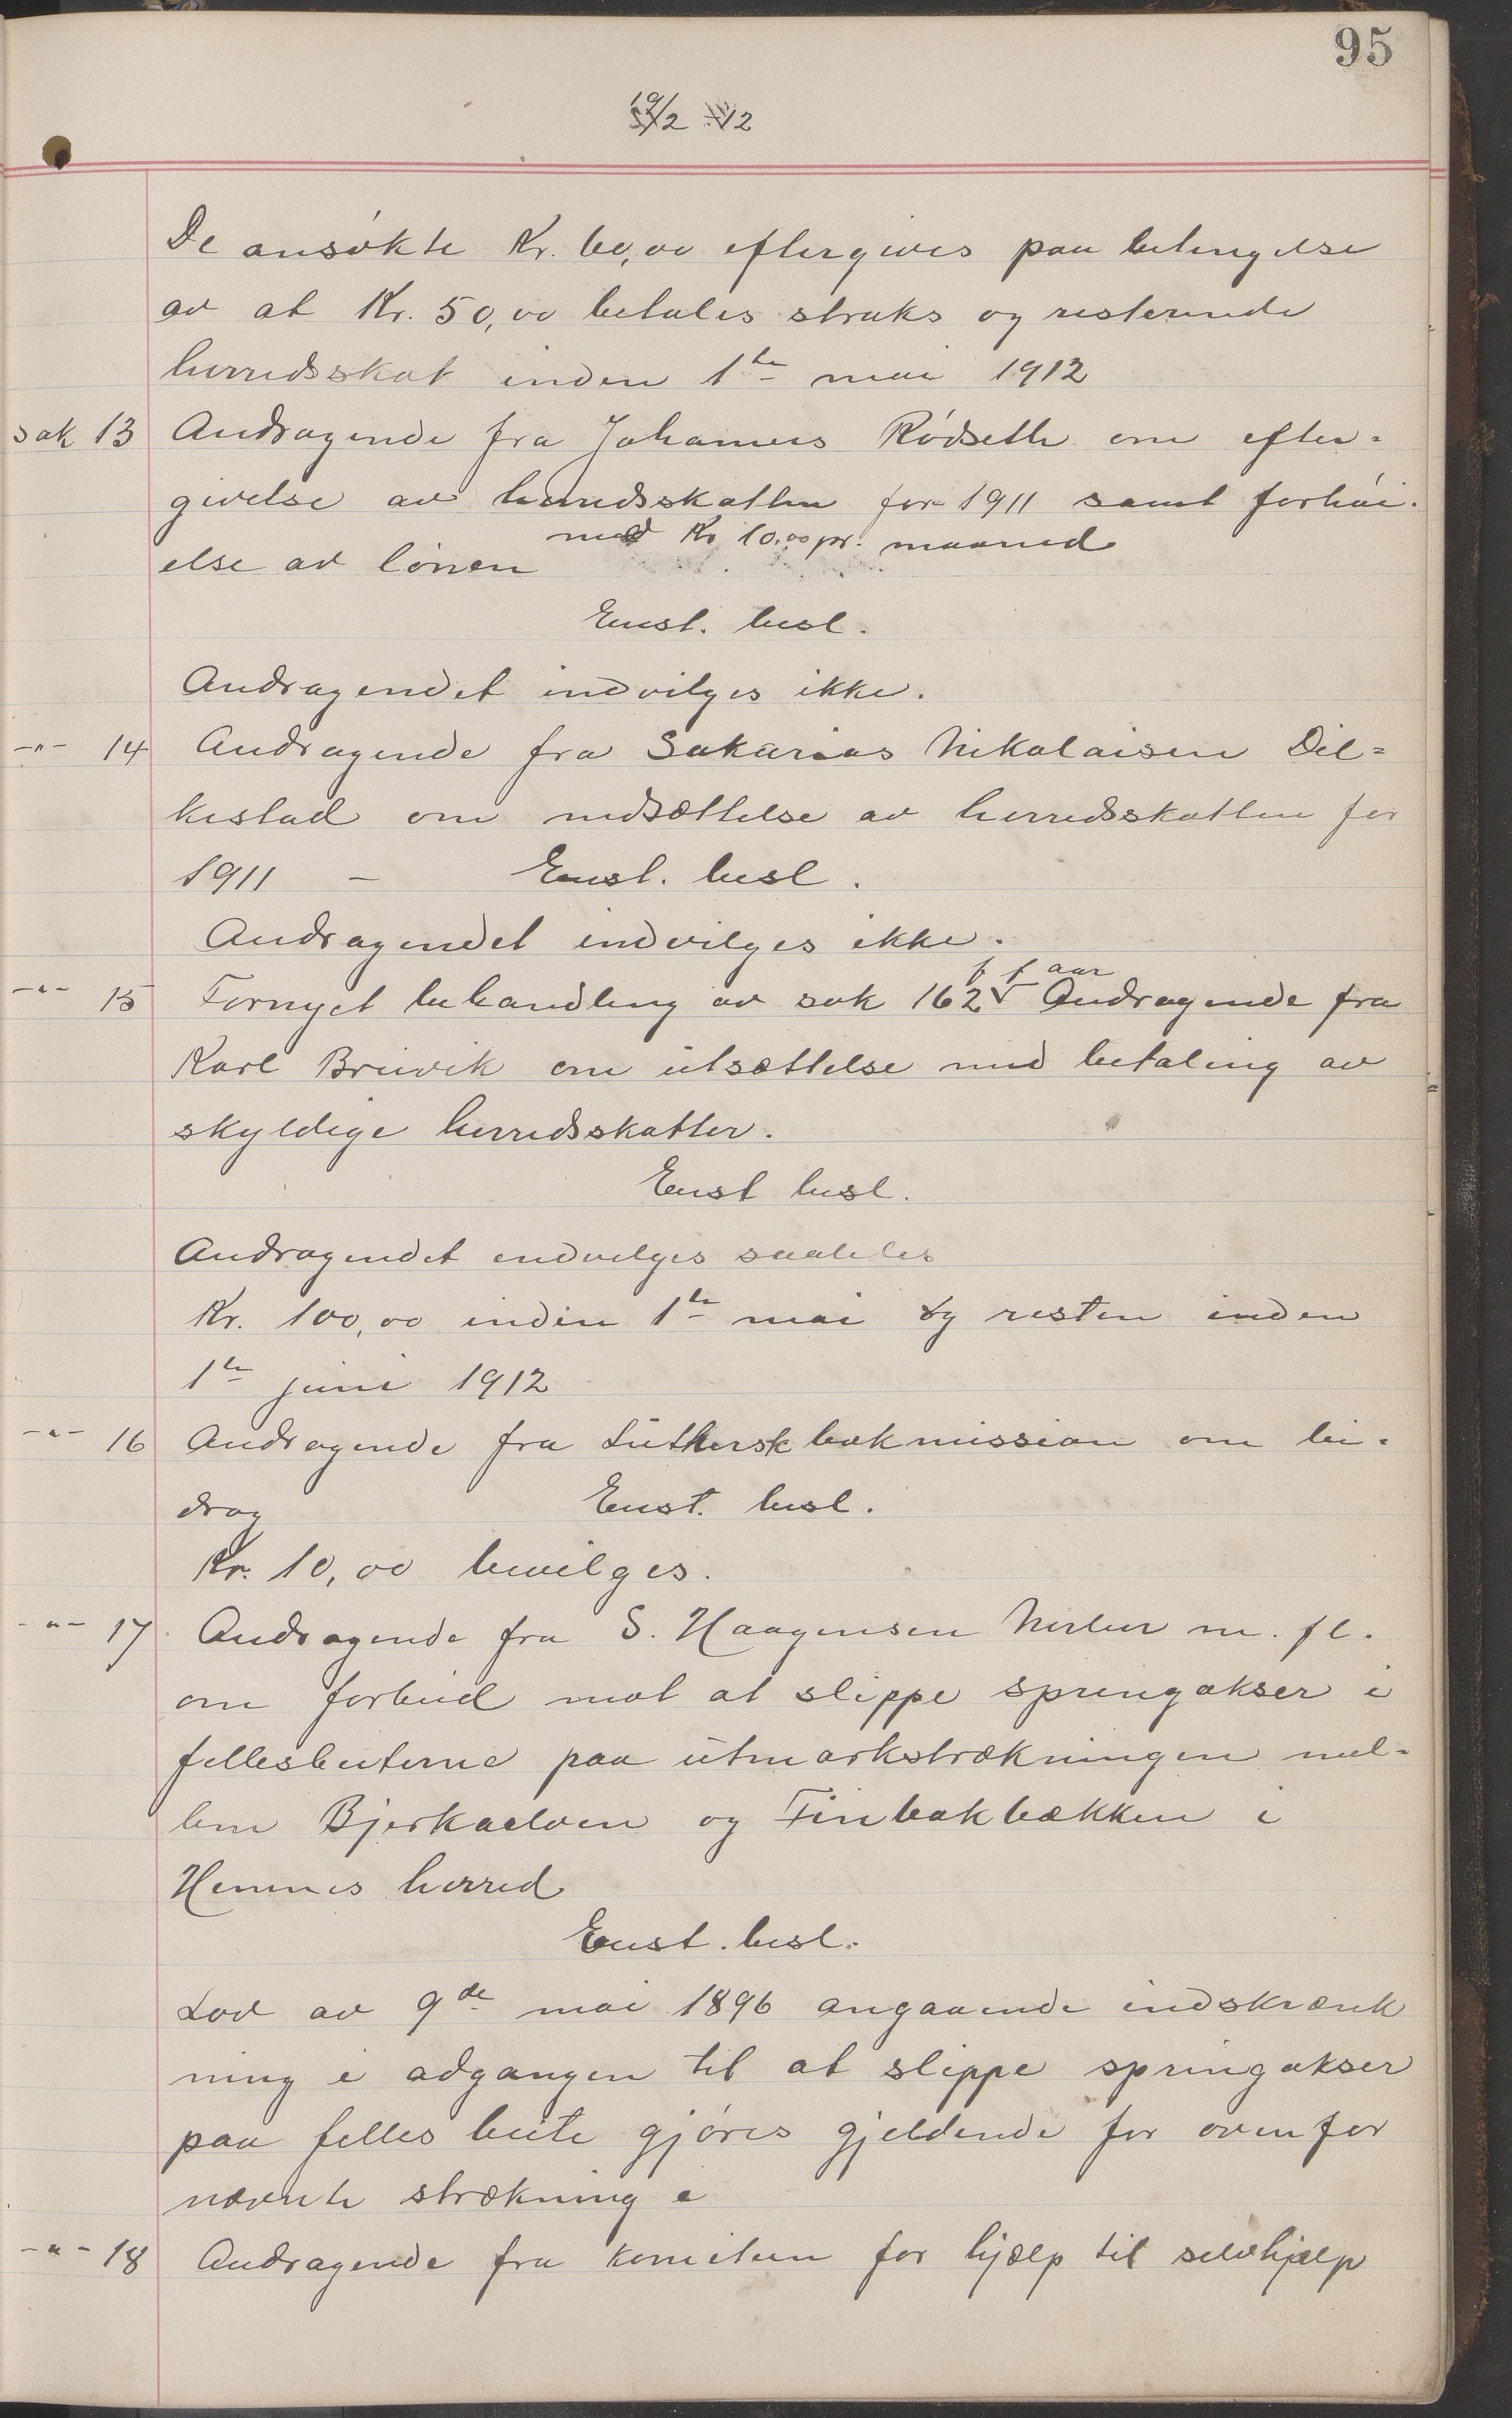 95
19/2 12
De ansökte Kr. 60,00 eftergives paa betingelse
av at Kr. 50,00 betales straks og resterende
herredsskat inden 1te mai 1912
sak 13 Andragende fra Johannes Rödseth om efter-
givelse av herredsskatten for 1911 samt forhöi-
else av lönen med Kr 10.00 pr. maaned
Enst. besl.
Andragendet indvilges ikke.
-"- 14 Andragende fra Sakarias Nikolaisen Dil-
kestad om nedsættelse av herredsskatten for
1911 - Enst. besl.
Andragendet indvilges ikke.
-"- 15 Fornyet behandling av sak 162 f f aar Andragende fra
Karl Bruvik om utsættelse med betaling av
skyldige herredsskatter.
Enst besl.
Andragendet indvilges saaledes
Kr. 100,00 inden 1te mai og resten inden
1te juni 1912
-"- 16 Andragende fra Luthersk bokmission om bi-
drag Enst. besl.
Kr. 10,00 bevilges.
-"- 17 Andragende fra S. Haagensen m. fl.
om forbud mot at slippe springokser i
fellesbeiterne paa utmarkstrækningen mel-
lem Bjerkaelven og Finbakbækken i
Hemnes herred
Enst. besl.
Lov av 9de mai 1896 angaaende indskrænk
ning i adgangen til at slippe springokser
paa felles beite gjöres gjeldende for ovenfor
nævnte strækning
-"- 18 Andragende fra komiteen for hjælp til selvhjælp